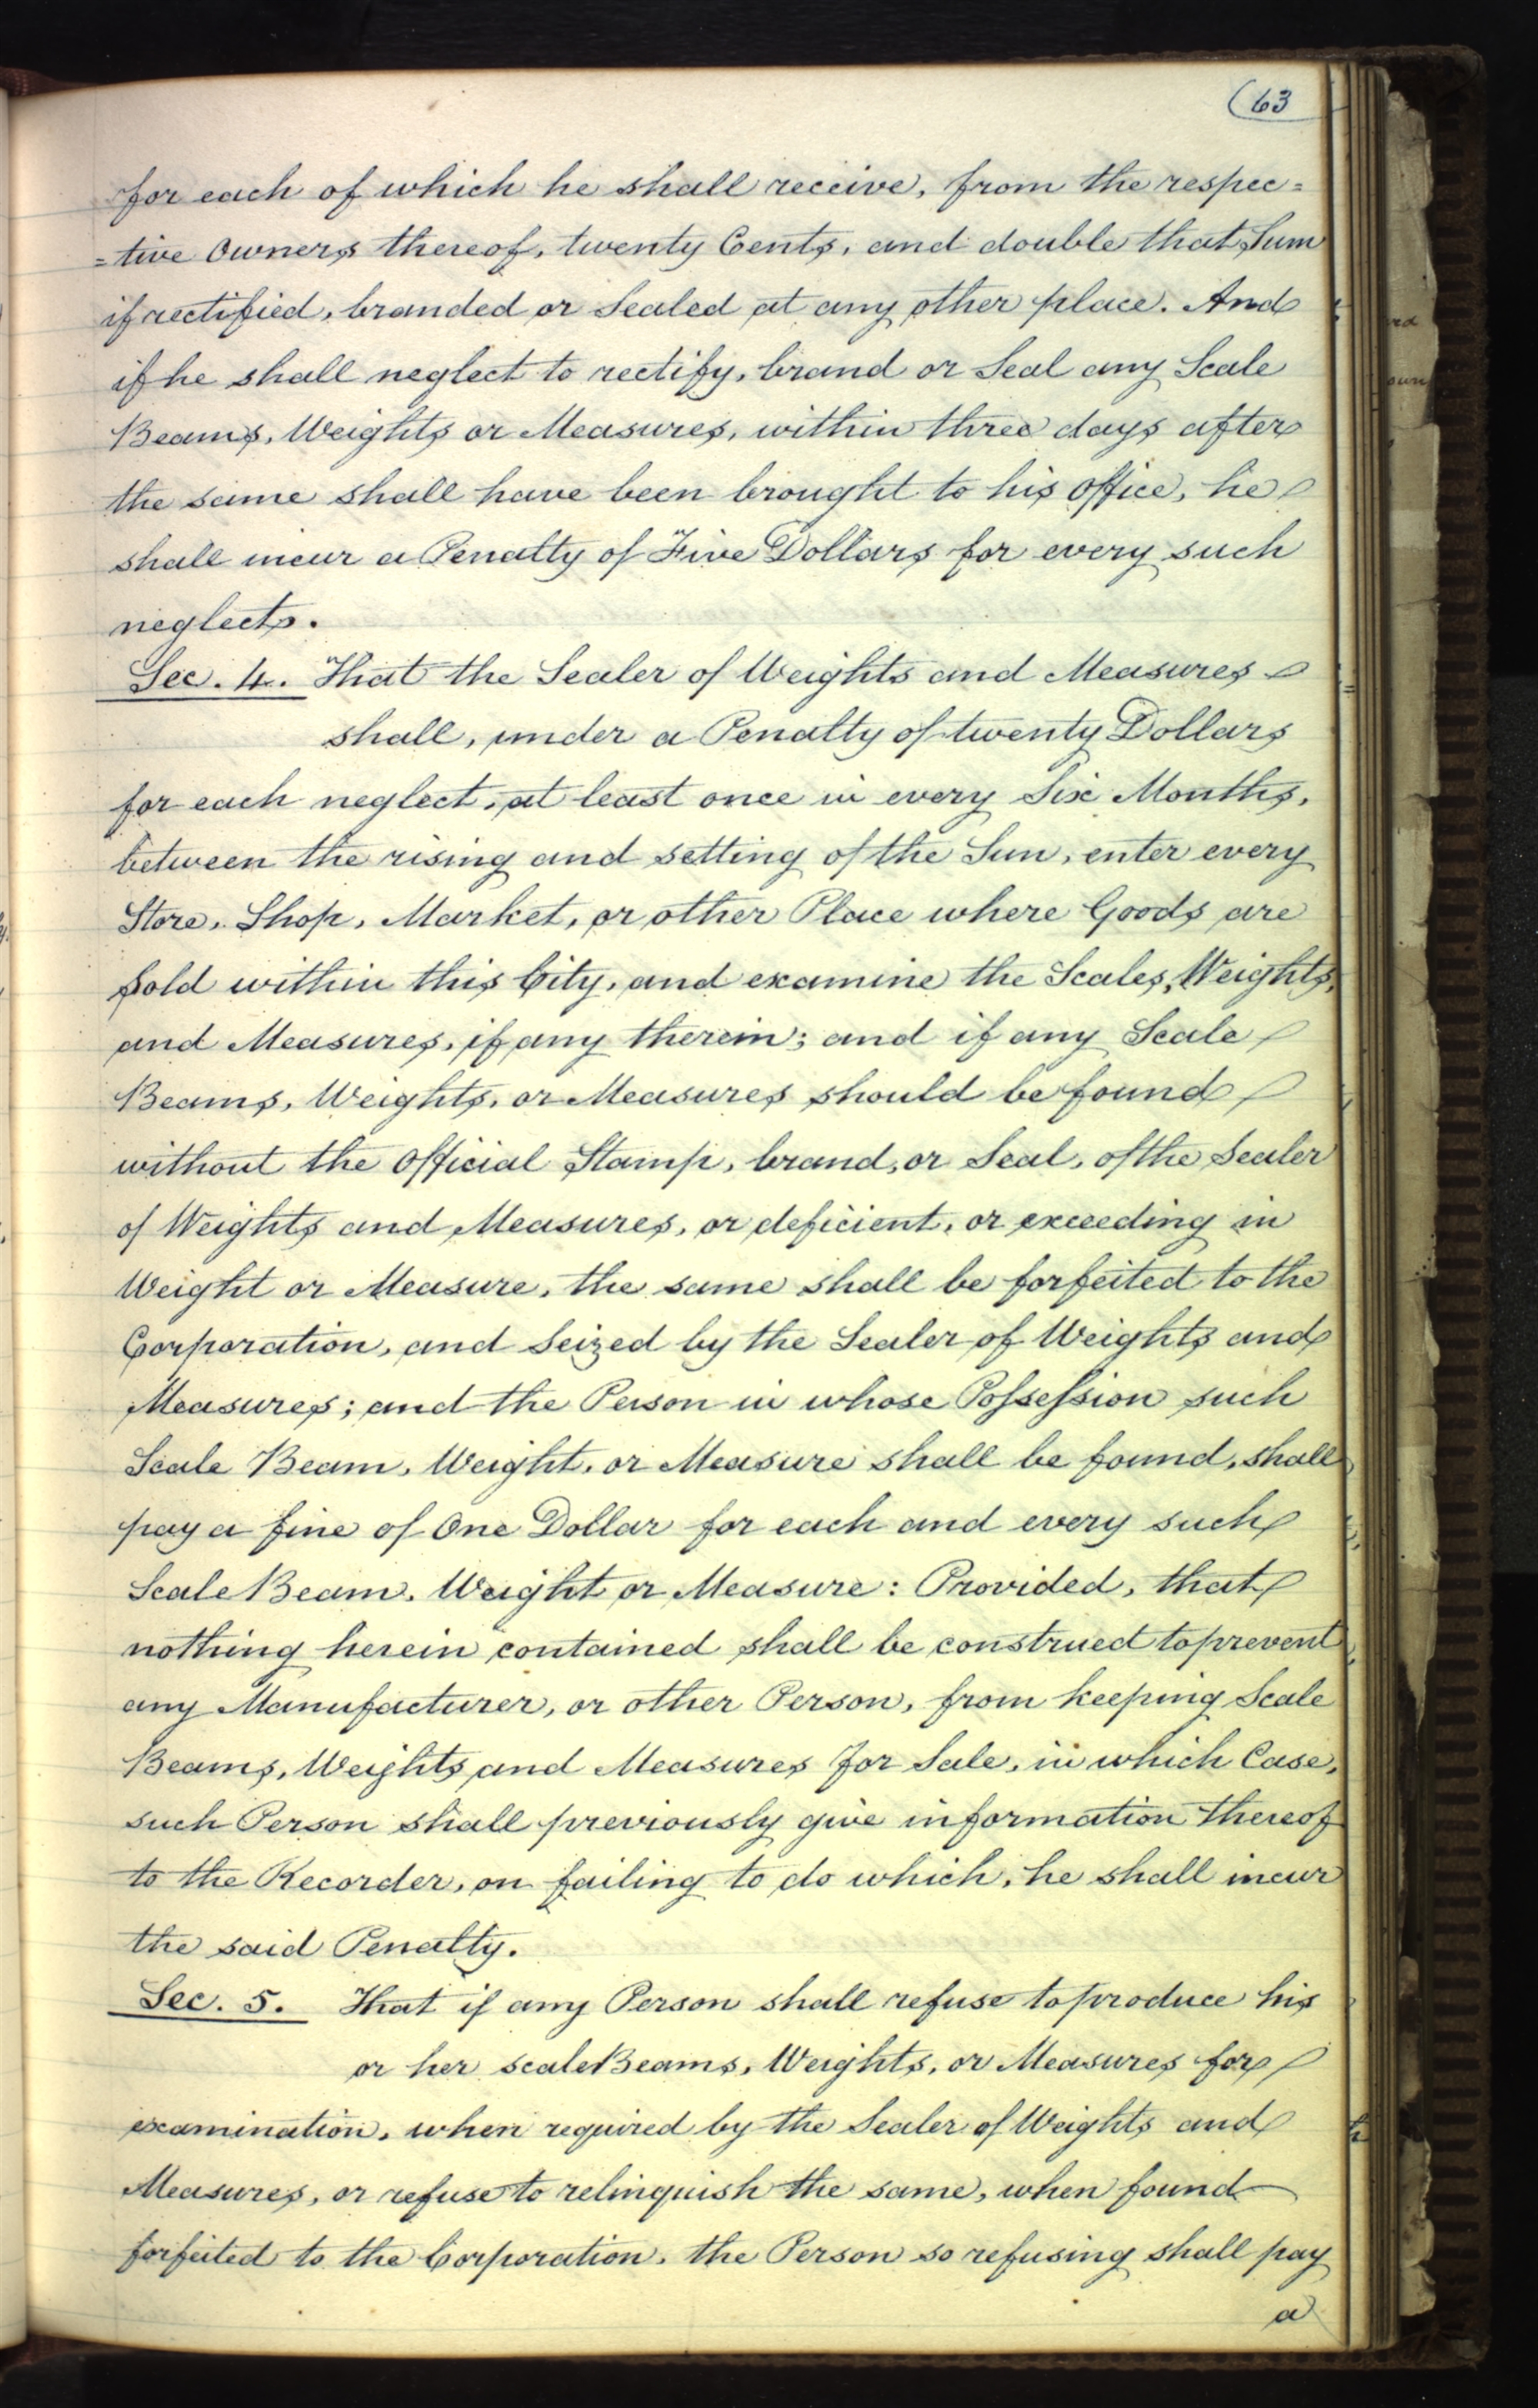 (63
for each of which he shall receive, from the respec=
=tive Owners thereof, twenty Cents, and double that Sum
if rectified, branded or Sealed at any other place. And
if he shall neglect to rectify, brand or Seal any Scale
Beams, Weights or Measures, within three days after
the same shall have been brought to his office, he
shall incur a Penalty of Five Dollars for every such
neglect.
Sec. 4. That the Sealer of Weights and Measures
shall, under a Penalty of twenty Dollars
for each neglect, at least once in every Six Months,
between the rising and setting of the Sun, enter every
Store, Shop, Market, or other Place where Goods are
Sold within this City, and examine the Scales, Weights,
and Measures, if any therein; and if any Scale
Beams, Weights, or Measures should be found
without the Official Stamp, brand, or Seal, of the Sealer
of Weights and Measures, or deficient, or exceeding in
Weight or Measure, the same shall be forfeited to the
Corporation, and Seized by the Sealer of Weights and
Measures; and the Person in whose Possession such
Scale Beam, Weight, or Measure shall be found, shall
pay a fine of One Dollar for each and every such
Scale Beam, Weight or Measure: Provided, that
nothing herein contained shall be construed to prevent
any Manufacturer, or other Person, from keeping Scale
Beams, Weights and Measures for Sale, in which Case,
such Person shall previously give information thereof
to the Recorder, on failing to do which, he shall incur
the said Penalty.
Sec. 5. That if any Person shall refuse to produce his
or her scale Beams, Weights, or Measures for
examination, when required by the Sealer of Weights and
Measures, or refuse to relinquish the same, when found
forfeited to the Corporation, the Person so refusing shall pay
a